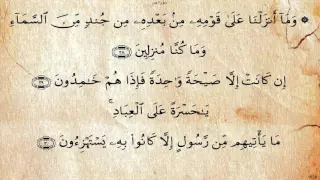 ۞ وَمَا أَنزَلْنَا عَلَىٰ قَوْمِهِۦ مِنۢ بَعْدِهِۦ مِن جُندٍ مِّنَ ٱلسَّمَآءِ
وَمَا كُنَّا مُنزِلِينَ ٢٨
إِن كَانَتْ إِلَّا صَيْحَةً وَٰحِدَةً فَإِذَا هُمْ خَٰمِدُونَ ٢٩
يَٰحَسْرَةً عَلَى ٱلْعِبَادِ ۚ
مَا يَأْتِيهِم مِّن رَّسُولٍ إِلَّا كَانُوا۟ بِهِۦ يَسْتَهْزِءُونَ ٣٠